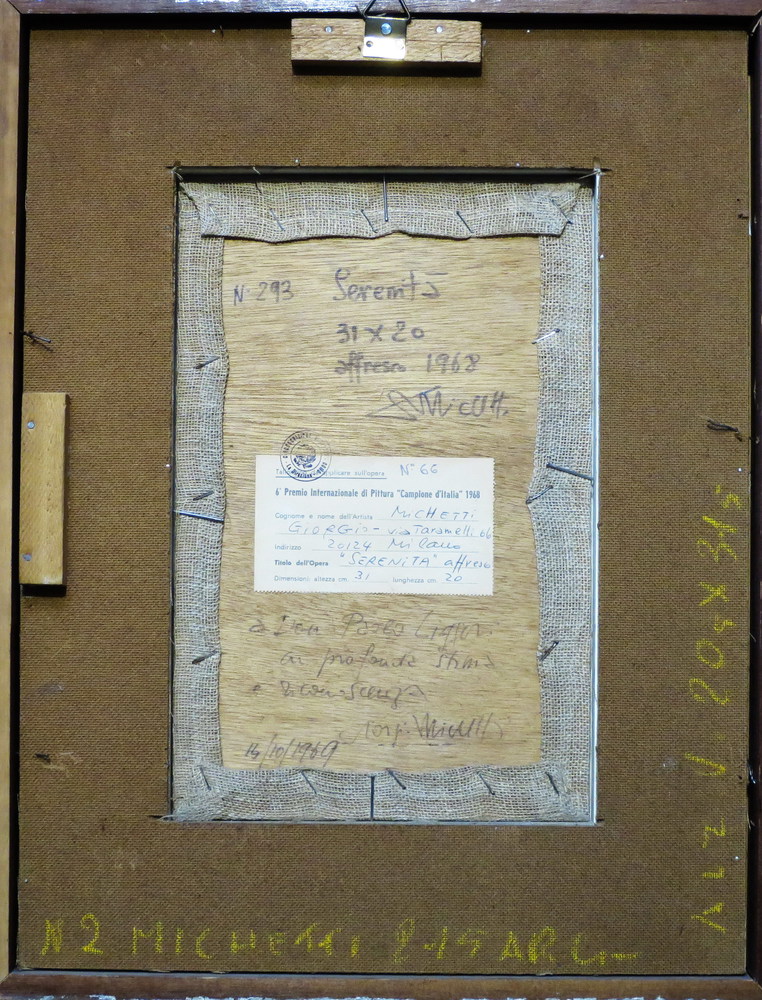 N. 293 Serenità
31 x 20
affresco 1968
GMichetti
N° 66
6° Premio Internazionale di Pittura "Campione d'Italia" 1968
Cognome e nome dell'Artista MICHETTI
GIORGIO - via Taramelli 66
Indirizzo 20124 Milano
Titolo dell'Opera "SERENITÀ" affresco
Dimensioni: altezza cm. 31 lunghezza cm. 20
a Don Paolo Liggeri
in profonda stima
e riconoscenza
Giorgio Michetti
14/10/1969
N2 MICHETTI